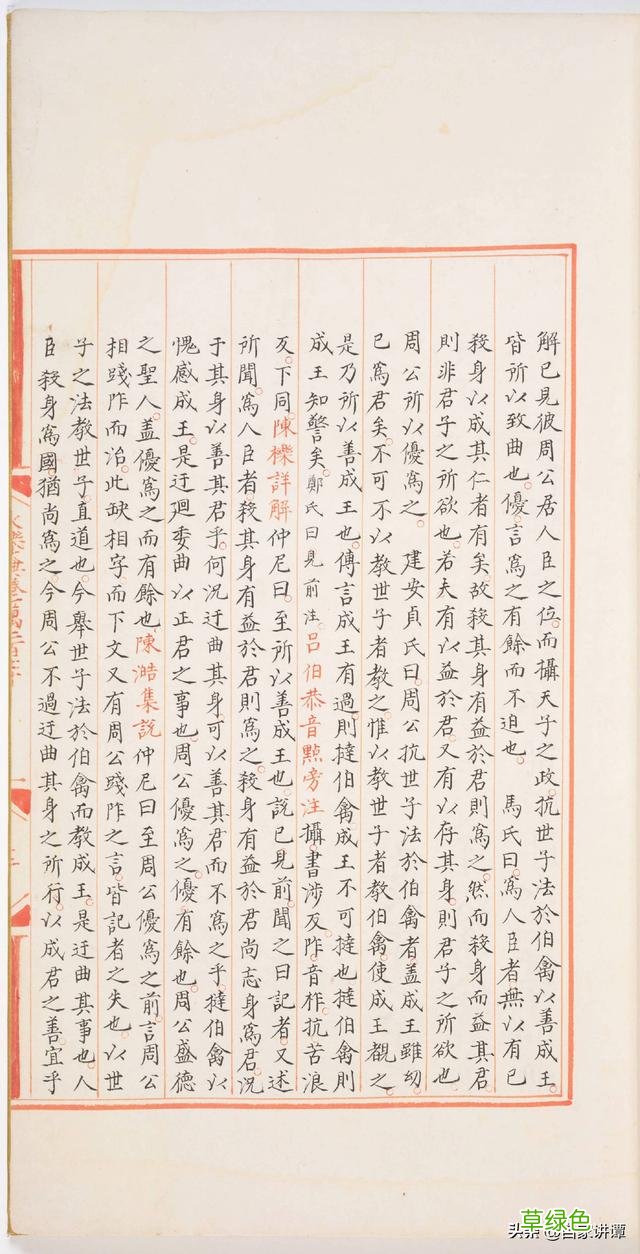 解已見彼周公居人臣之位。而攝天子之政。抗世子法於伯禽。以善成王。
皆所以致曲也。優言爲之有餘而不迫也。　馬氏曰。爲人臣者。無以有已
殺身以成其仁者有矣。故殺其身有益於君則爲之。然而殺身而益其君。
則非君子之所欲也。若夫有以益於君。又有以存其身。則君子之所欲也
周公所以優爲之。　建安貞氏曰。周公抗世子法於伯禽者。蓋成王雖幼。
已爲君矣。不可不以教世子者教之。惟以教世子者教伯禽。使成王觀之。
是乃所以善成王也。傳言成王有過。則撻伯禽。成王不可撻也。撻伯禽則
成王知警矣。鄭氏曰見前注。呂伯恭音點旁注攝。書涉反。阼。音柞。抗。苦浪
反。下同。陳櫟詳解仲尼曰。至所以善成王也。說已見前聞之曰。記者又述
所聞。爲人臣者。殺其身有益於君則爲之。殺身有益於君尚忘身爲君。况
于其身以善其君乎。何況迂曲其身。可以善其君而不爲之乎。撻伯禽以
愧感成王。是迂迴委曲以正君之事也。周公優爲之。優。有餘也。周公盛德
之聖人。蓋優爲之而有餘也。陳澔集說仲尼曰至周公優爲之前言周公
相踐阼而治。此缺相字。而下文又有周公踐阼之言。皆記者之失也。以世
子之法教世子。直道也。今舉世子法於伯禽而教成王。是迂曲其事也。人
臣殺身爲國。猶尚爲之。今周公不過迂曲其身之所行。以成君之善。宜乎
草绿色
头条 @百家讲谭